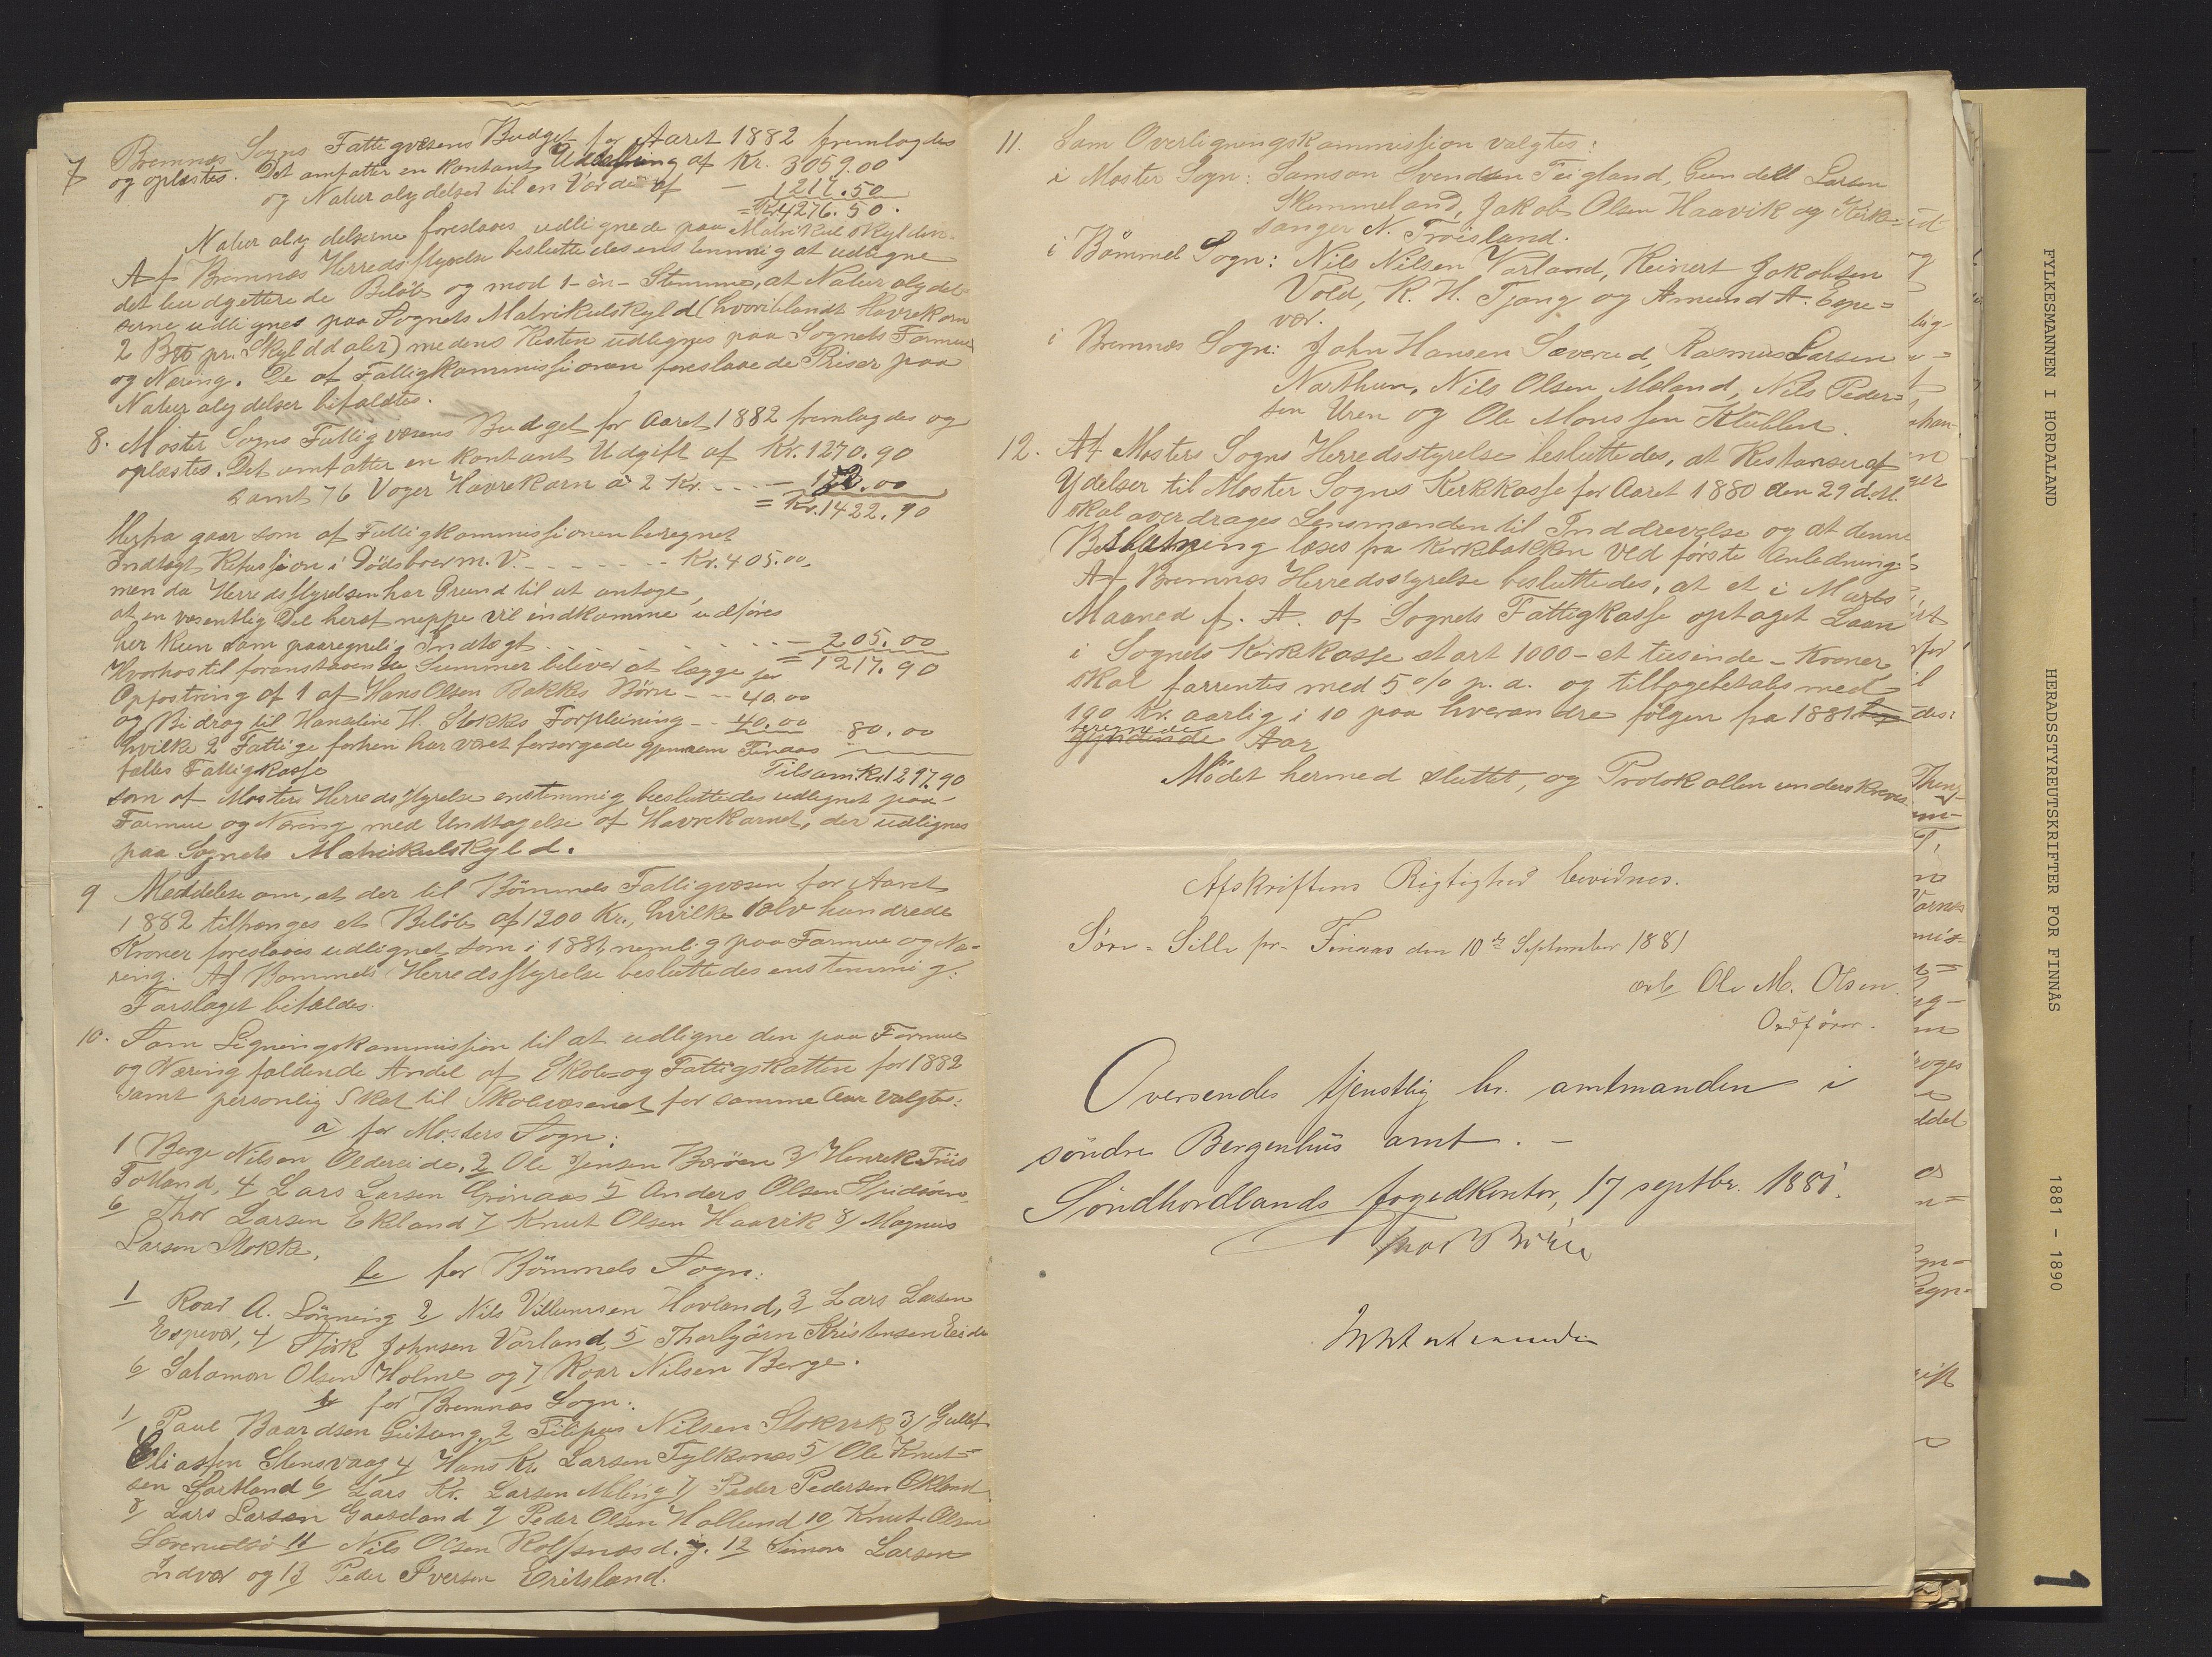 7 Bremnæs Sogns Fattigvæsens Budget for Aaret 1882 fremlagdes
og oplæstes. Det omfatter en kontant Uddeling af Kr. 3059.00
og Naturalydelser til en Værdi af — 1217.50
= Kr. 4276.50.
Naturalydelserne foreslaaes udlignede paa Matrikulskylden.
Af Bremnæs Herredsstyrelse besluttedes enstemmig at udligne
det budgetterede Beløb og mod 1 - èn - Stemme, at Naturalydel-
serne udlignes paa Sognets Matrikulskyld (hvoriblandt Havrekorn
2 B℔ pr. Skylddaler) medens Resten udlignes paa Sognets Formue
og Næring. De af Fattigkommissionen foreslaaede Priser paa
Naturalydelser bifaldtes.
8. Moster Sogns Fattigvæsens Budget for Aaret 1882 fremlagdes og
oplæstes. Det omfatter en kontant Udgift af Kr. 1270.90
samt 76 Voger Havrekorn à 2 Kr. - - - — 152.00
= Kr. 1422.90
Herfra gaar som af Fattigkommissionen beregnet
Indtægt Refusion i Dødsboer m. V. - - - - - - - Kr. 405.00,
men da Herredsstyrelsen har Grund til at antage,
at en væsentlig Del heraf neppe vil indkomme udføres
her kun som paaregnelig Indtægt - - - - - - — 205.00
= 1217.90
Hvorhos til foranstaaende Summer bliver at lægge for
Opfostring af 1 af Hans Olsen Bakkes Børn - - - 40.00
og Bidrag til Hanseline H. Stokkes Forpleining - - 40.00 80.00
hvilke 2 Fattige forhen har været forsørgede gjennem Finaas
fælles Fattigkasse
Tilsam. Kr. 1297.90
som af Mosters Herredsstyrelse enstemmig besluttedes udlignet paa
Formue og Næring med Undtagelse af Havrekornet, der udlignes
paa Sognets Matrikulskyld.
9 Meddelelse om, at der til Bømmels Fattigvæsen for Aaret
1882 tiltrænges et Beløb af 1200 Kr., hvilke tolv hundrede
Kroner foreslaaes udlignet som i 1881, nemlig paa Formue og Næ-
ring. Af Bømmels Herredsstyrelse besluttedes enstemmig:
Forslaget bifaldes.
10. Som Ligningskommission til at udligne den paa Formue
og Næring faldende Andel af Skole- og Fattigskatten for 1882
samt personlig Skat til Skolevæsenet for samme Aar valgtes:
a for Mosters Sogn:
1 Berge Nilsen Oldereide, 2 Ole Jensen Børøen 3/ Henrik Friis
Totland, 4 Lars Larsen Grønaas 5 Anders Olsen
6 Thor Larsen Ekland 7 Knut Olsen Haavik 8/ Magnus
Larsen Stokke.
b for Bømmels Sogn:
1 Roar A. Lønning 2 Nils Villumsen Hovland, 3 Lars Larsen
Espevær, 4 Størk Johnsen Vorland, 5 Thorbjørn Kristensen Eide
6 Salamon Olsen Holme og 7 Roar Nilsen Berge.
for Bremnæs Sogn:
1 Paul Baardsen Gitung 2 Filipus Nilsen Stokvik 3/ Gullef
Eliassen Stensvaag 4 Hans Kr. Larsen Fylkesnæs 5/ Ole Knut-
sen Sortland 6 Lars Kr. Larsen Meling 7/ Peder Pedersen Økland
8 Lars Larsen Gaasland 9 Peder Olsen Hollund 10 Knut Olsen
Sæverudsø 11 Nils Olsen Rolfsnæs d. y. 12 Simon Larsen
Indvær og 13 Peder Iversen Eritsland.
11. Som Overligningskommission valgtes:
i Moster Sogn: Samson Svendsen Teigland, Gundell Larsen
Skimmeland, Jakob Olsen Haavik og Kirke-
sanger N. Froisland.
i Bömmel Sogn: Nils Nilsen Vorland, Reinert Jakobsen
Vold, K. H. Tjong og Amund A. Espe=
vær.
i Bremnæs Sogn: John Hansen Sæverud, Rasmus Larsen
Northun, Nils Olsen Meland, Nils Peder=
sen Uren og Ole Monssen Hubbler.
12. Af Mosters Sogns Herredsstyrelse besluttedes, at Restanser af
Ydelser til Moster Sogns Kirkkasse for Aaret 1880 den 29 d. M.
skal overdrages Lensmanden til Inddrevelse og at denne
Beslutning læses fra Kirkbakken ved første Anledning.
Af Bremnæs Herredsstyrelse besluttedes, at et i Marts
Maaned f. A. af Sognets Fattigkasse optaget Laan
i Sognets Kirkkasse stort 1000 - et tusinde - Kroner
skal forrentes med 5 % p. a. og tilbagebetales med
100 Kr. aarlig i 10 paa hverandre følgen fra 1881
beregnede
Aar
Mødet hermed sluttet, og Protokollen underskreves
Afskriftens Rigtighed bevidnes.
Søre-Sille pr. Finaas den 10de September 1881
ærb Ole M. Olsen
Ordfører.
Oversendes tjenstlig hr. amtmanden i
søndre Bergenhus amt. —
Søndhordlands fogedkontor, 17 septbr. 1881.
FYLKESMANNEN I HORDALAND
HERADSSTYREUTSKRIFTER FOR FINNÅS
1881 - 1890
1